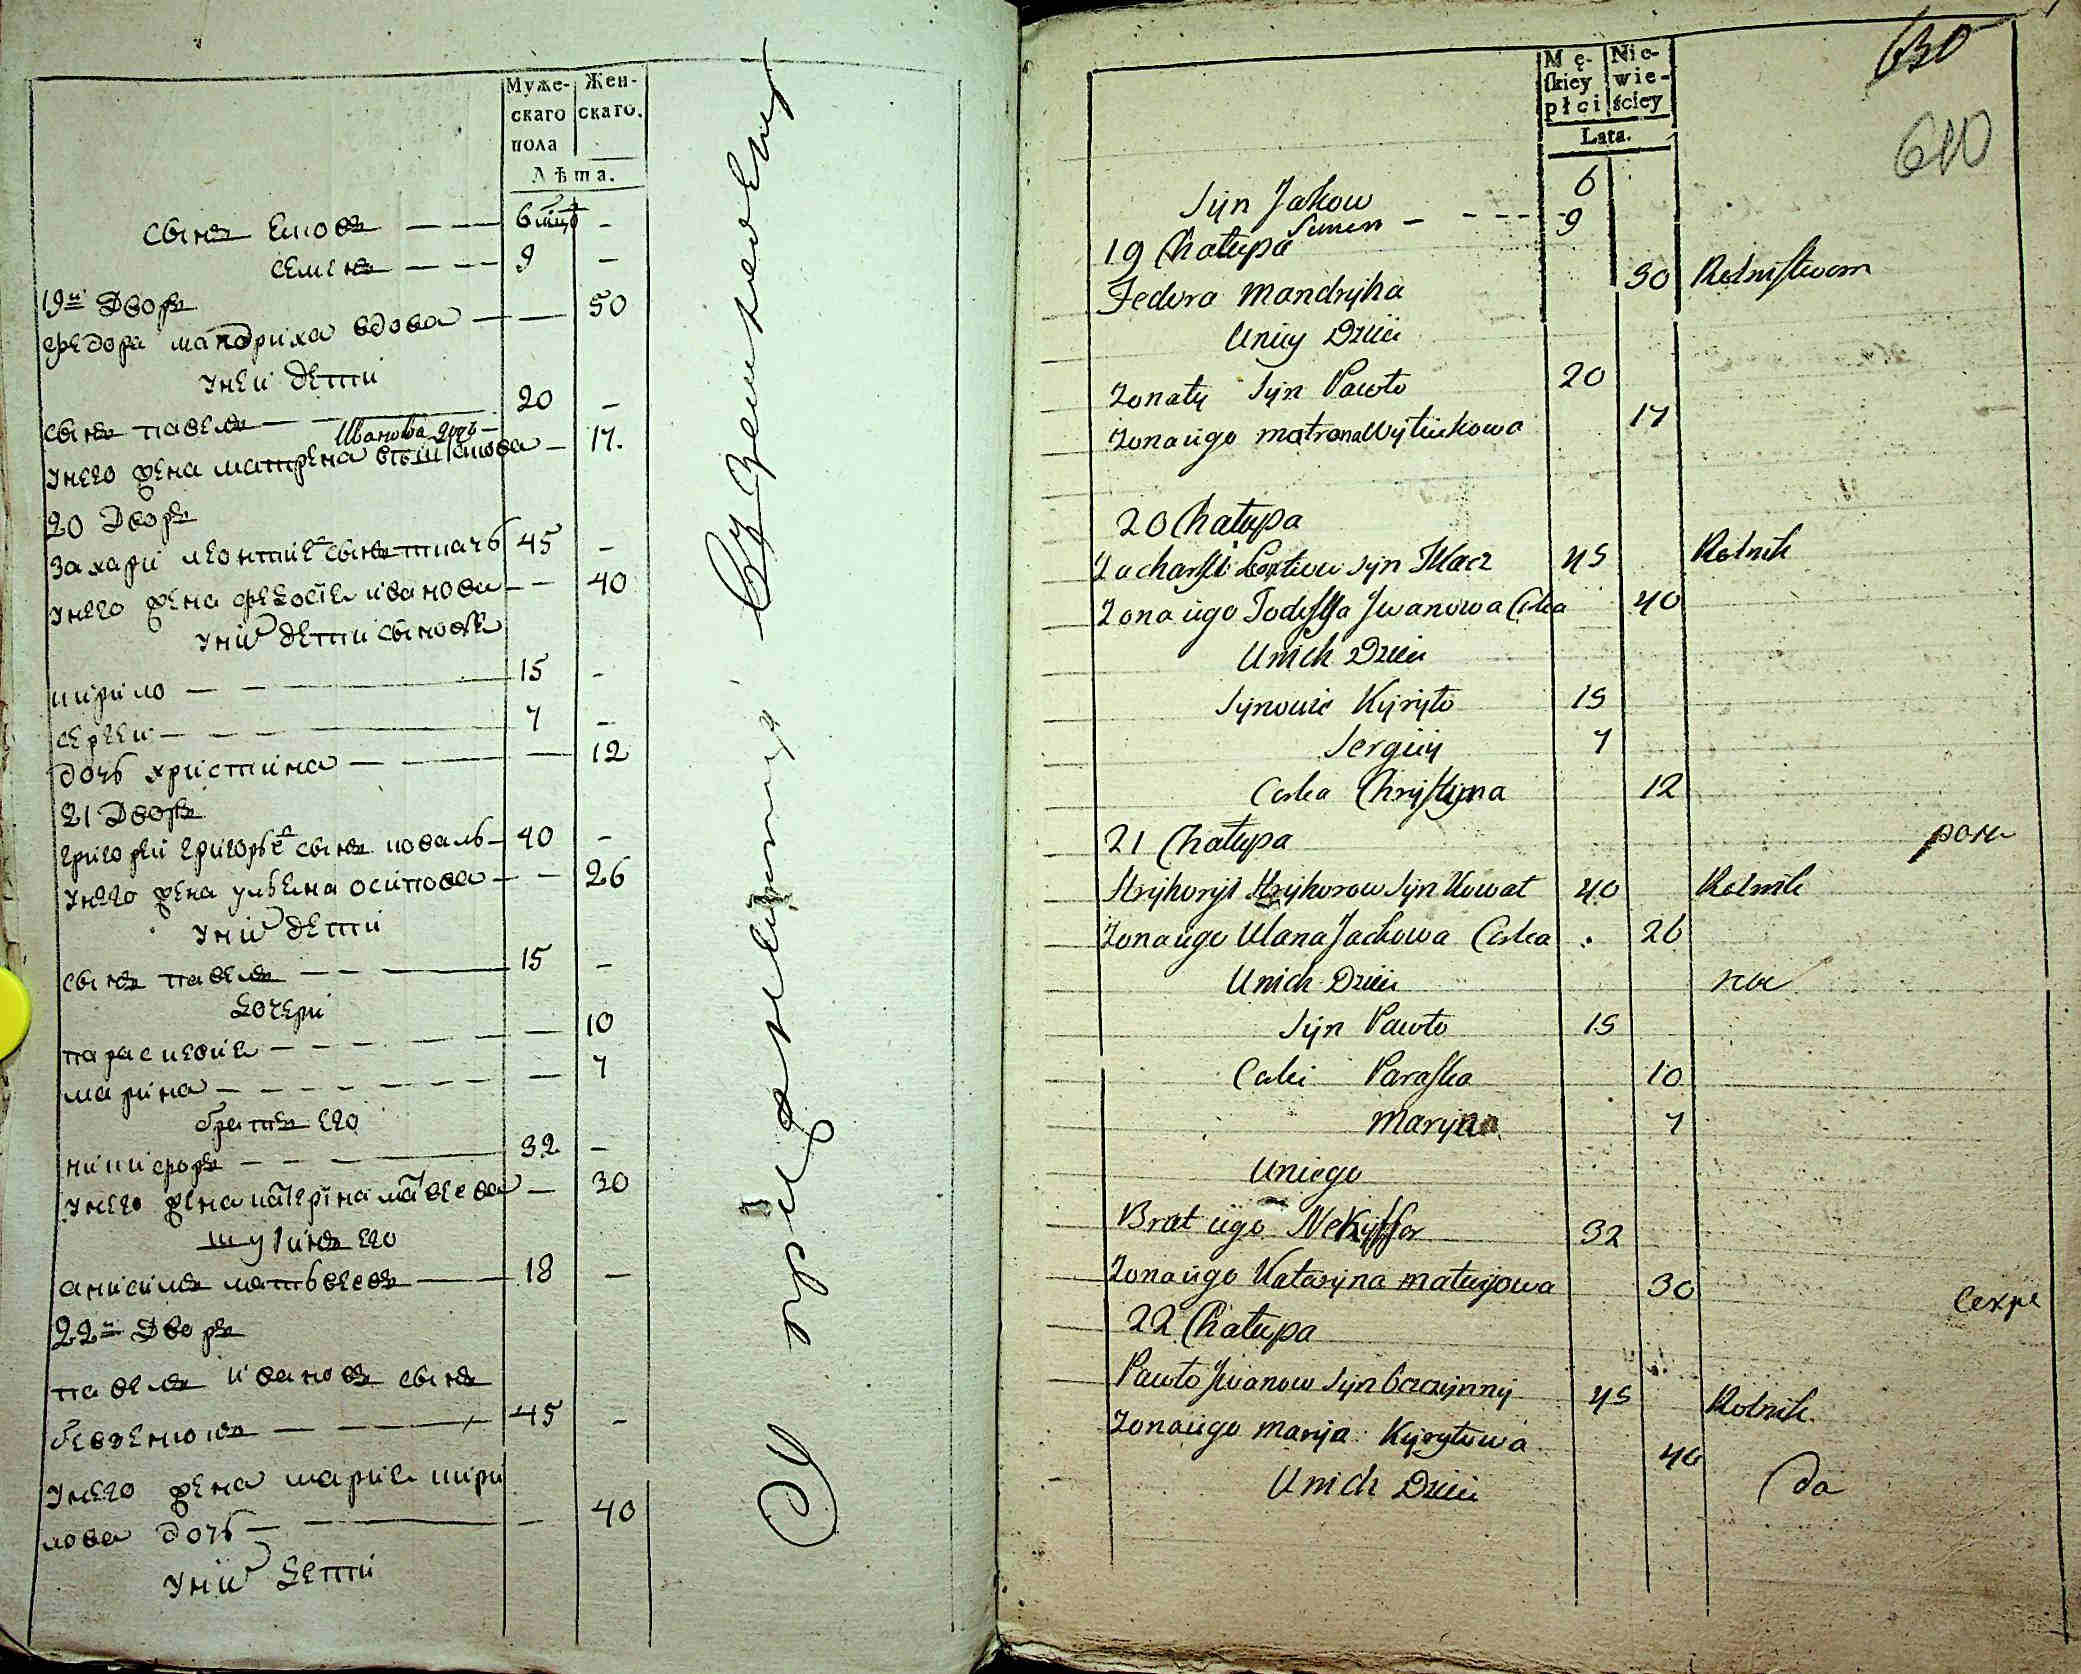 Муже-
скаго
пола
Жен-
скаго.
Лѣта.
сынъ яковъ 6
семенъ 9
19й Дворъ
Федора мандриха вдова 50
у ней дети
сынъ павелъ 20
Иванова дочь
у него жена матрена 17.
20 Дворъ
Захари леонтиевъ сынъ ткачь 45
у него жена феѡдосiя иванова 40
у них дети сыновья
кирило 15
сергеи 7
дочь христина 12
21 Дворъ
григореи григорьевъ сынъ коваль 40
у него жена ульяна осипова 26
у них дети
сынъ павелъ 15
Дочери
параскевия 10
марина 7
братъ его
никифоръ 32
у него жена катерина матвеева 30
шуринъ его
анисимъ матьвеевъ 18
22й Дворъ
павелъ ивановъ сынъ
45
у него жена мария кири
лова дочь 40
у них Дети
Mę-
skiey
płci
Nie-
wie-
ściey
Lata.
630
610
Syn Jakow 6
Semen 9
19 Chałupa
Fedora Mandrycha 50 Rolnistwom
Uniey Dzieci
Żonaty Syn Pawło 20
Żona iego Matrona 17
20 Chałupa
Zacharyi Leontiew Syn Tkacz 45 Rolnik
Żona iego Todosya Jwanowa Corka 40
Unich Dzieci
Synowie Kyryło 15
Sergiiy 7
Corka Chrystyna 12
21 Chałupa
Hryhoryi Hryhorow Syn Kowal 40 Rolnik
Żona iego Ulana Jackowa Corka 26
Unich Dzieci
Syn Pawło 15
Corki Paraska 10
Maryna 7
Uniego
Brat iego Nekyffor 32
Żona iego Kataryna Matwijowa 30
22 Chałupa
Pawło Jwanow Syn 45 Rolnik
Żona iego Maryia Kyryłowa 40
Unich Dzieci